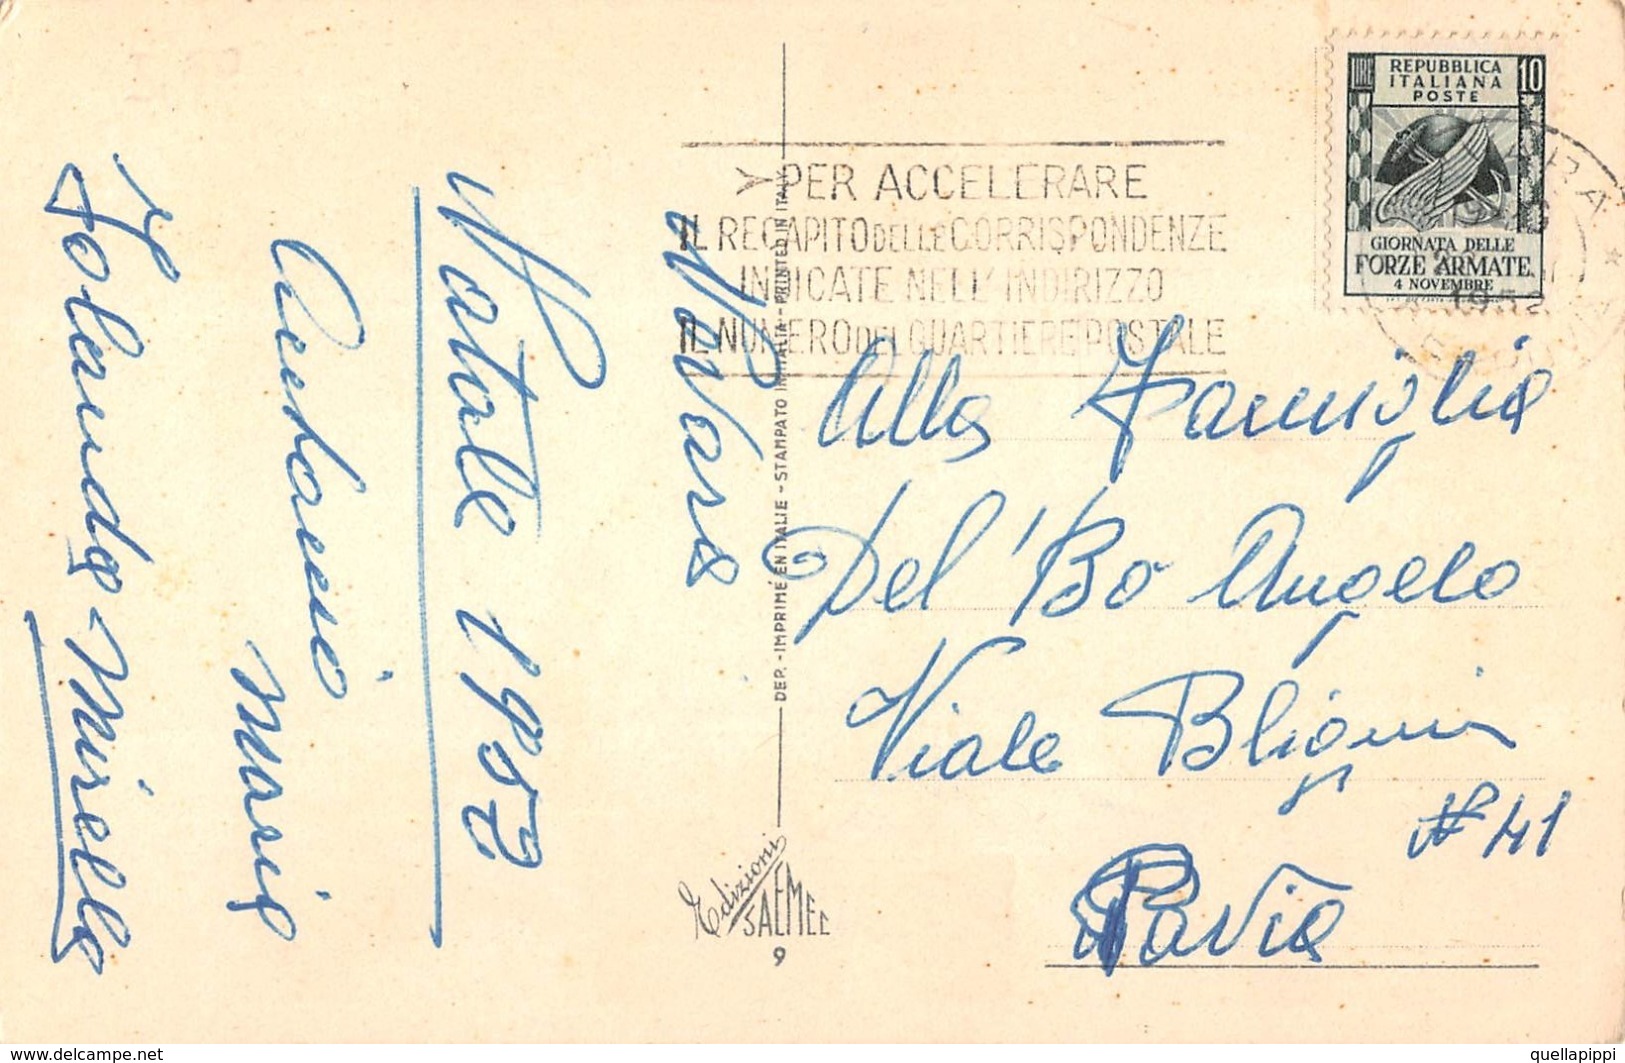 Novara
Natale 1952
Antonio Maria
Iolanda Mirella
Alla Famiglia
Del'Bo Angelo
Viale Bligni
N° 41
Pavia
LIRE
REPUBBLICA
ITALIANA
POSTE
10
GIORNATA DELLE
FORZE ARMATE
4 NOVEMBRE
PER ACCELERARE
IL RECAPITO DELLE CORRISPONDENZE
INDICATE NELL'INDIRIZZO
IL NUMERO DEL QUARTIERE POSTALE
1952
DEP. - IMPRIMÉ EN ITALIE - STAMPATO IN ITALIA - PRINTED IN ITALY
Edizioni
SAEMEC
9
https://www.delcampe.net
quellapippi